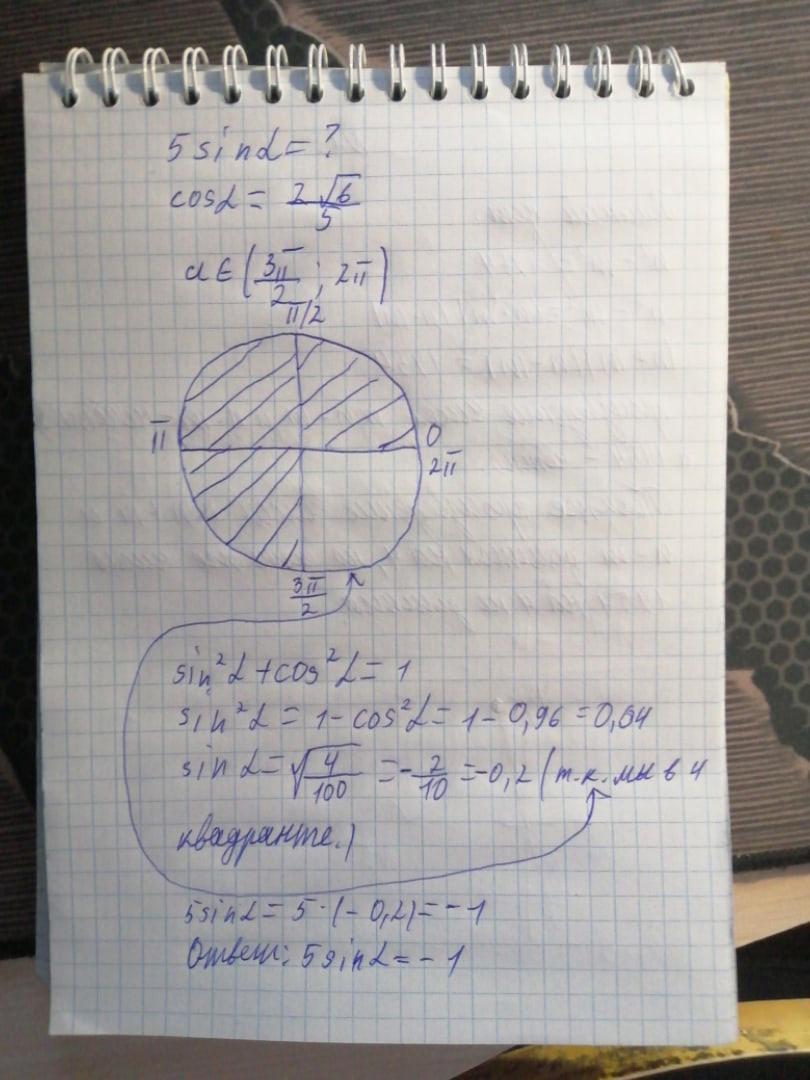 5 sin α = ?
cos α = 2√6/5
α ∈ (3π/2 ; 2π)
π/2
π
0
2π
3π/2
sin²α + cos²α = 1
sin²α = 1 - cos²α = 1 - 0,96 = 0,04
sin α = √(4/100) = -2/10 = -0,2 (т.к. мы в 4
квадранте.)
5 sin α = 5 · (-0,2) = -1
Ответ: 5 sin α = -1